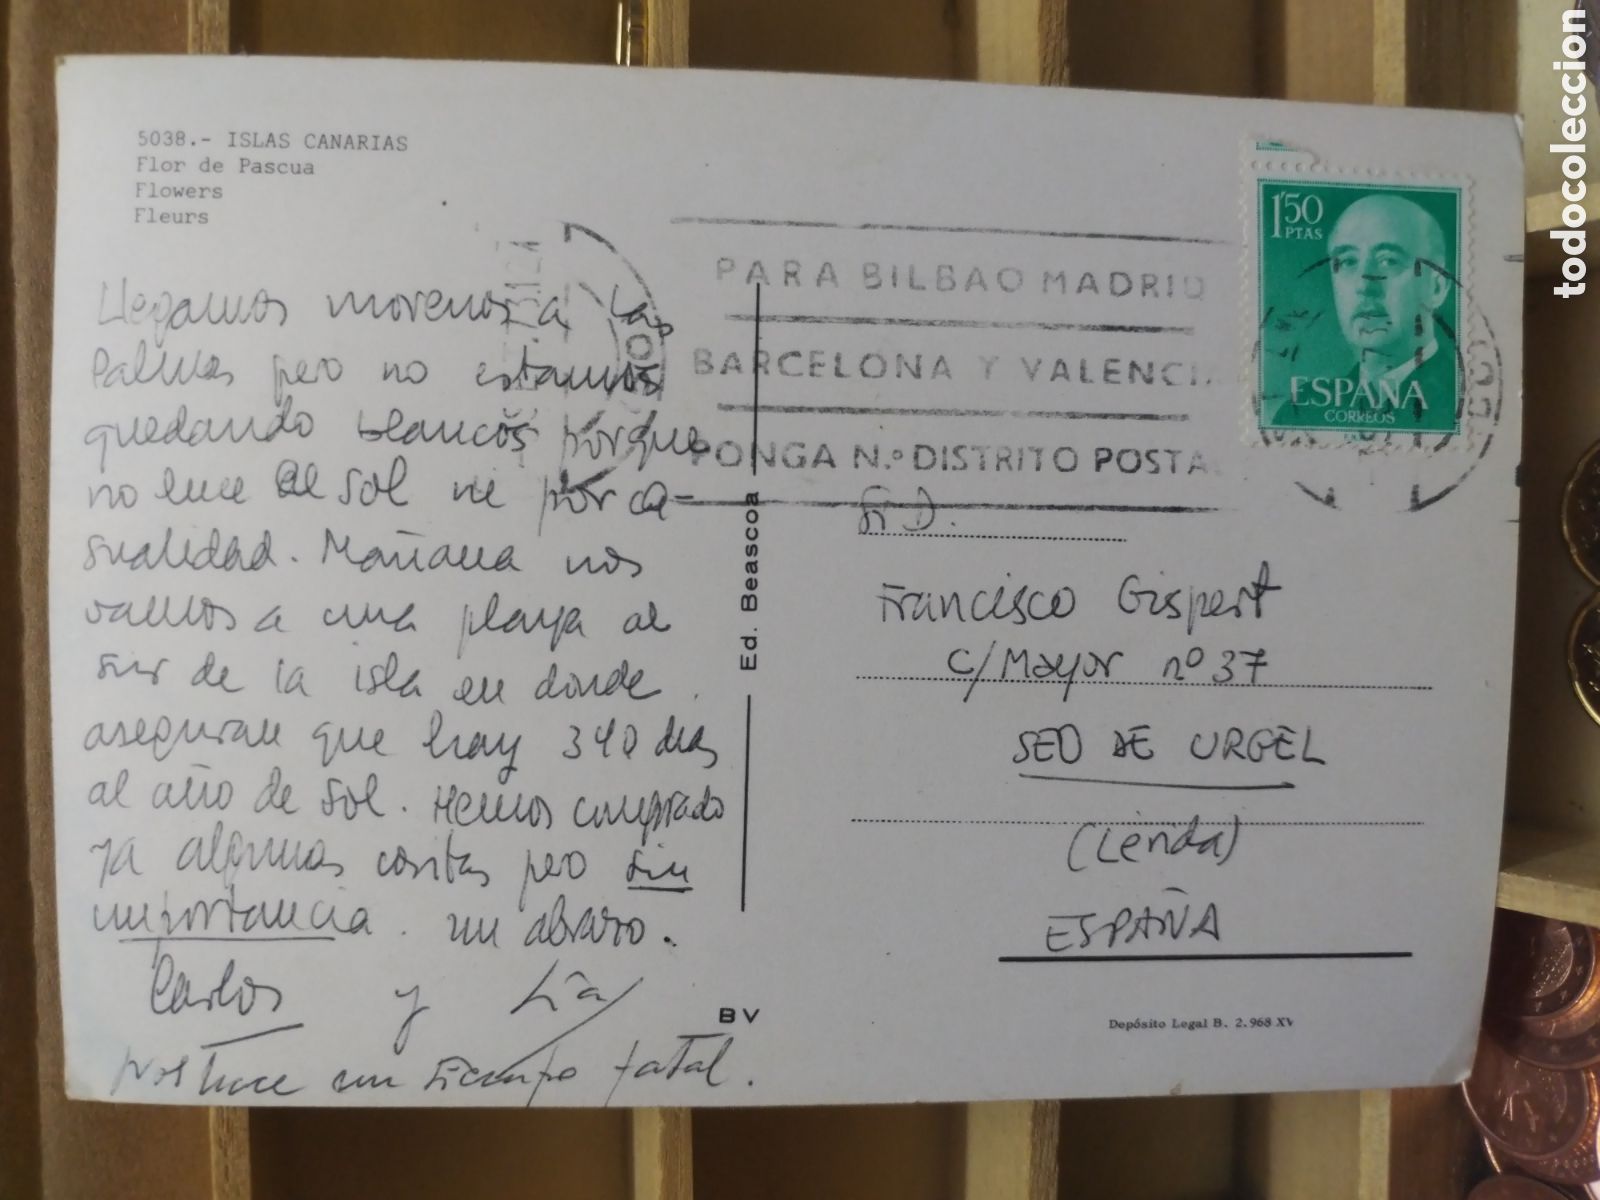 5038.- ISLAS CANARIAS
Flor de Pascua
Flowers
Fleurs
Llegamos morenos a las
Palmas pero no estamos
quedando blancos porque
no luce el sol ni por ca-
sualidad. Mañana nos
vamos a una playa al
sur de la isla en donde
aseguran que hay 340 dias
al año de sol. Hemos comprado
ya algunas cositas pero sin
importancia. un abrazo.
Carlos y
hace un tiempo fatal.
PARA BILBAO MADRID
BARCELONA Y VALENCIA
PONGA N.º DISTRITO POSTAL
1'50
PTAS
ESPAÑA
CORREOS
Sr. D.
Francisco Gispert
C/Mayor nº 37
SEO DE URGEL
(Lerida)
ESPAÑA
Ed. Beascoa
BV
Depósito Legal B. 2.968 XV
todocoleccion